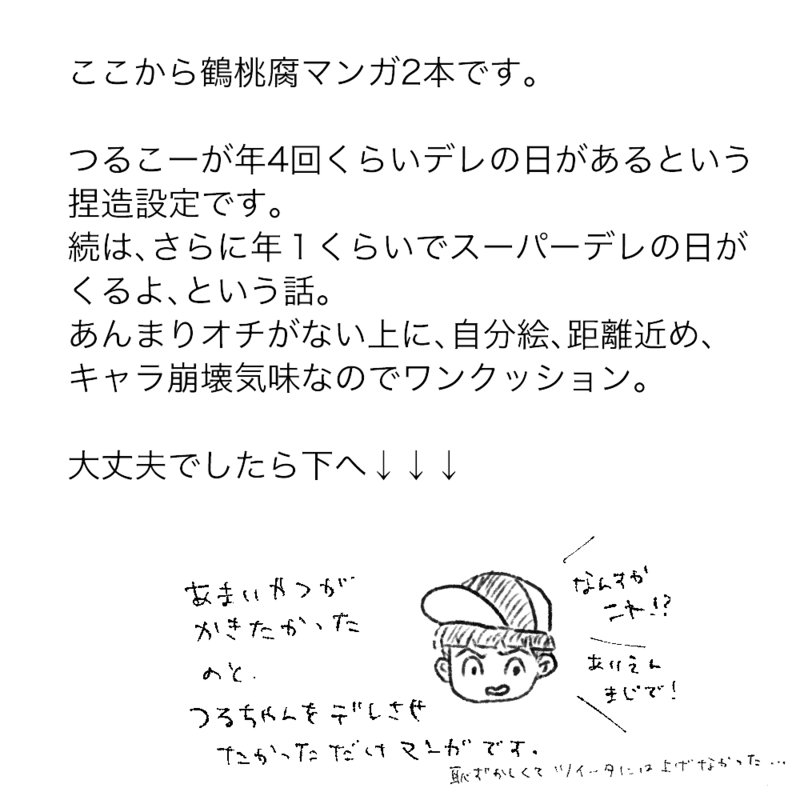 ここから鶴桃腐マンガ2本です。
つるこーが年4回くらいデレの日があるという
捏造設定です。
続は、さらに年１くらいでスーパーデレの日が
くるよ、という話。
あんまりオチがない上に、自分絵、距離近め、
キャラ崩壊気味なのでワンクッション。
大丈夫でしたら下へ↓↓↓
あまいやつが
かきたかった
のと、
つるちゃんをデレさせ
たかっただけマンガです。
なんすか
コレ!?
ありえん
まじで!
恥ずかしくてツイッタには上げなかった…